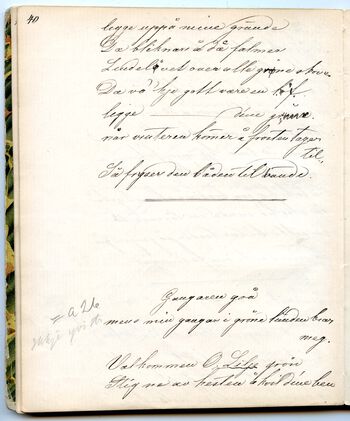 40
legge uppå mine grønde
Da bleknar å da falmer
Lindeløvet over alle grøne skove
Da vo' kje gott vare en
legge ——— dine grøne
når vinteren kømer å frosten tager
til.
Så fryser den båden til bande.
Gangaren grå
mens min gangar i grøne lunden brar
meg.
= a 26
Valkommen O, Lilje grön
Stig ne av hesten å kvil dine ben